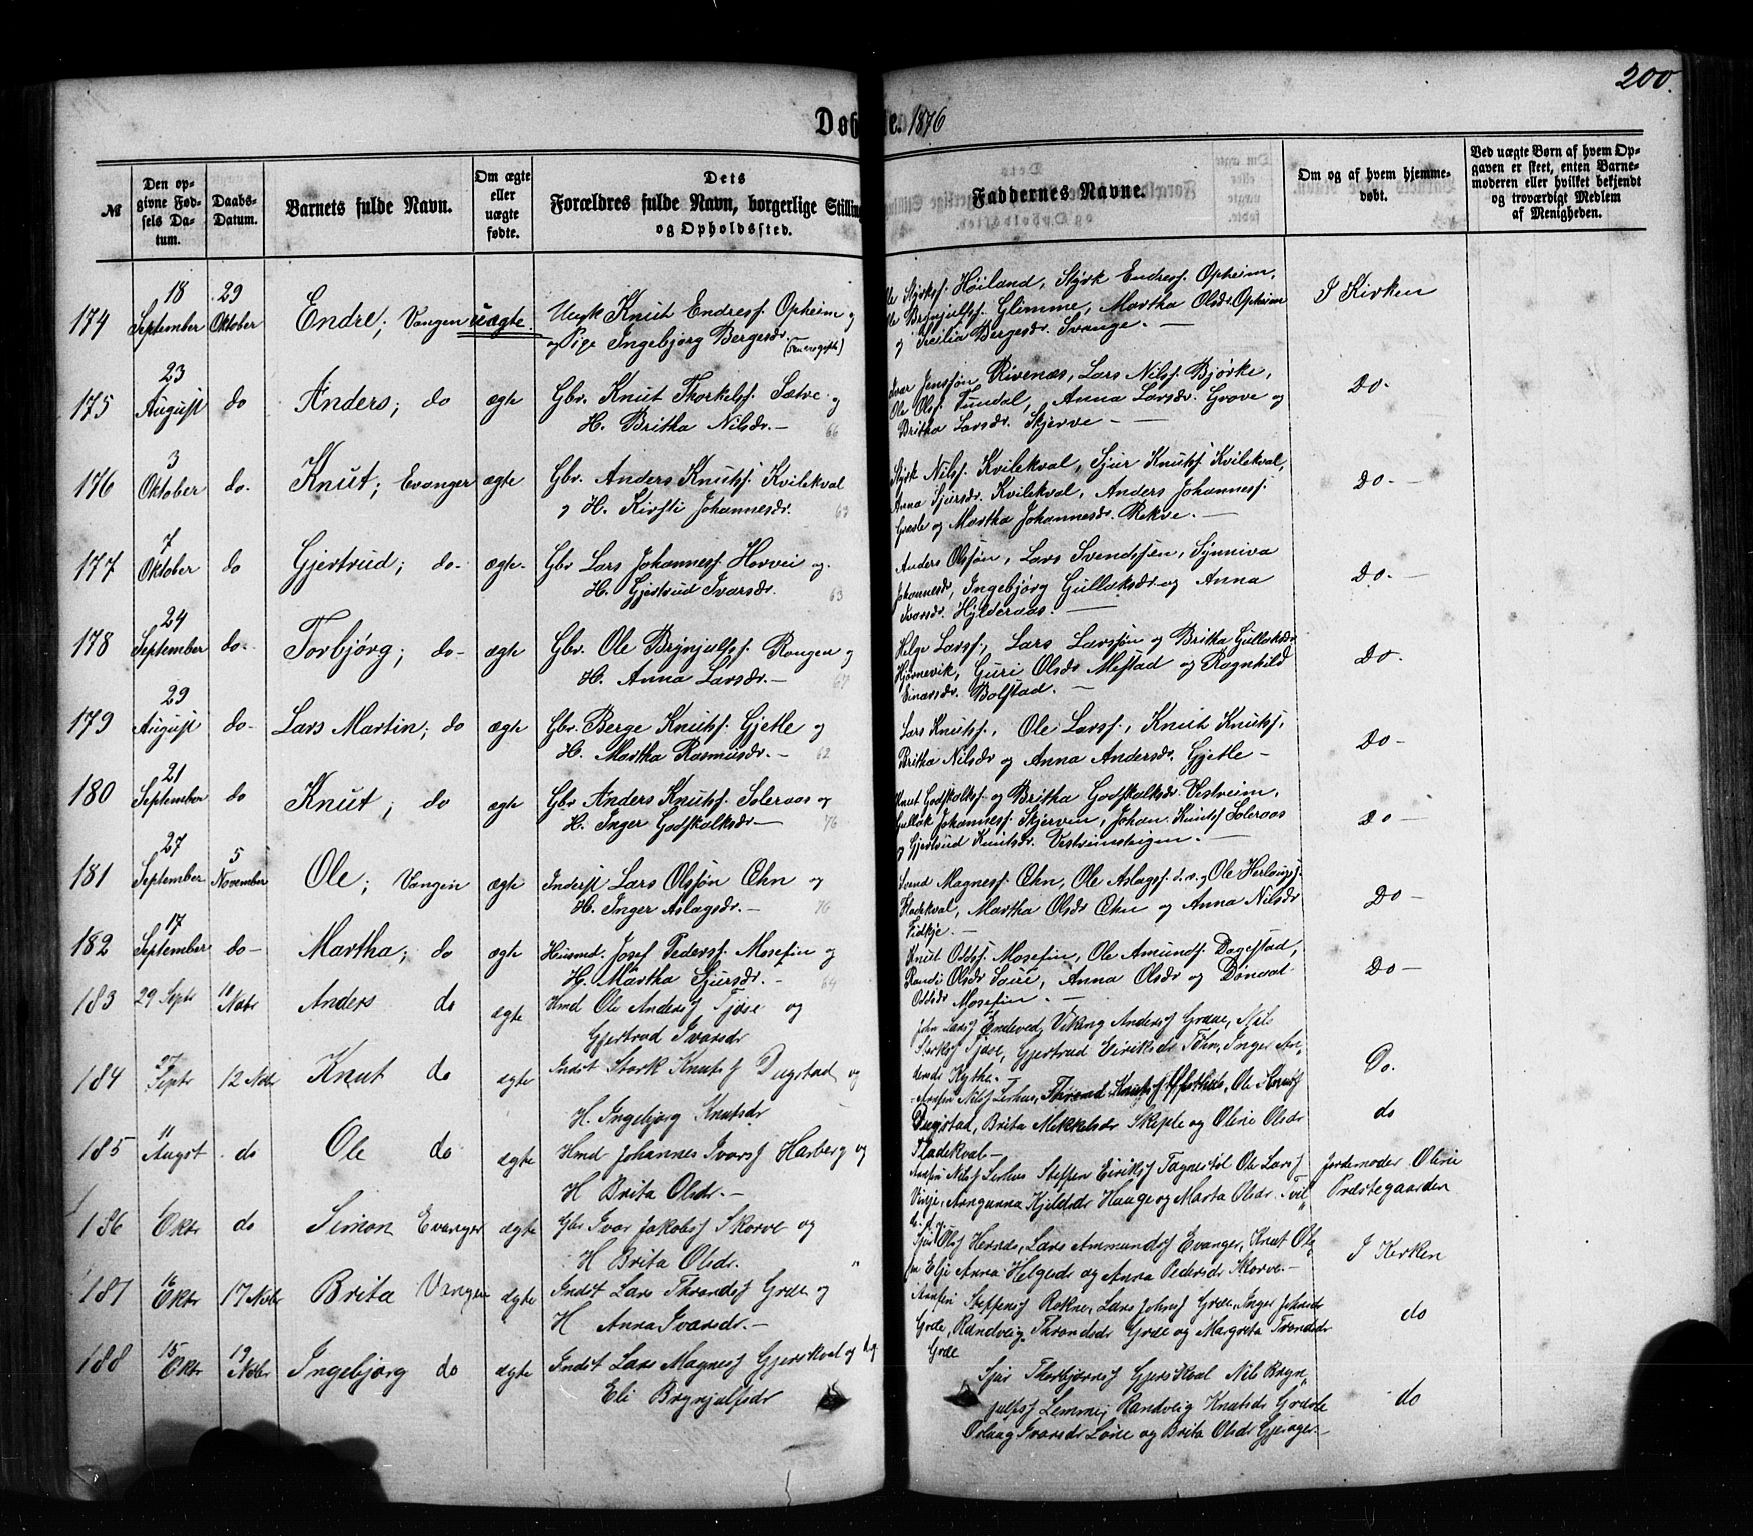 200.
Døbte. 1876
№
Den opgivne Fødsels Datum.
Daabs-Datum.
Barnets fulde Navn.
Om ægte eller uægte fødte.
Dets Forældres fulde Navn, borgerlige Stilling og Opholdssted.
Faddernes Navne.
Om og af hvem hjemmedøbt.
Ved uægte Børn af hvem Opgaven er skeet, enten Barnemoderen eller hvilket bekjendt og troværdigt Medlem af Menigheden.
174 18 September 29 Oktober Endre; Vangen uægte Ungk Knut Endress. Opheim og
Pige Ingebjørg Bergesdr.
Styrkss. Høiland, Styrk Endress. Opheim,
Brynjulfss. Glimme, Martha Olsdr. Opheim
og Bergesdr. Svange. —
I Kirken
175 23 August do Anders; do ægte Gbr. Knut Thorkelss. Sætve og
H. Britha Nilsdr. — 66
Ivar Jenssøn Rivenæs, Lars Nilss. Bjørke,
Ole Olss. Tundal, Anna Larsdr. Grove og
Britha Larsdr. Skjerve —
Do.
176 3 Oktober do. Knut; Evanger ægte Gbr. Anders Knutss. Kvilekval
og H. Kirsti Johannesdr.
Styrk Nilss. Kvilekval, Sjur Knutss. Kvilekval,
Anna Sjursdr. Kvilekval, Anders Johanness.
og Martha Johannesdr. Rekve. —
Do. —
177 7 Oktober do Gjertrud; do. ægte. Gbr Lars Johanness. Horvei og
H. Gjertrud Ivarsdr. 63
Anders Olssøn, Lars Svendssen, Synniva
Johannesdr, Ingebjørg Gullaksdr. og Anna
Ivarsdr. Hylderaas. —
Do. —
178 24 September do. Torbjørg; do. ægte Gbr. Ole Brynjulfss. Rongen og
H. Anna Larsdr. —
Helge Larss., Lars Larssøn og Britha Gullaksdr.
Hjørnevik, Guri Olsdr Mestad og Ragnhild
Einarsdr. Bolstad. —
Do.
179 29 August do. Lars Martin; do ægte Gbr. Berge Knutss. Gjetle og
H. Martha Rasmusdr. — 62
Lars Knutss., Ole Larss., Knut Knutss.
Britha Nilsdr og Anna Andersdr. Gjetle —
Do —
180 21 September do Knut; do ægte Gbr Anders Knutss. Soleraas og
H. Inger Godskalksdr — 76
Knut Godskalkss. og Britha Godskalksdr. Vestreim,
Gullak Johanness. Skjerven, Johan. Knutss Soleraas
og Gjertrud Knutsdr. —
Do —
181 27 September 5 November Ole; Vangen ægte Inderst Lars Olssøn Øhn og
H. Inger Aslagsdr. — 76
Svend Magness. Øhn, Ole Aslagss. d.s. og Ole
Flatekval, Martha Olsdr Øhn og Anna Nilsdr
Eidkje. —
Do —
182 17 September do — Martha; do ægte Huusmd. Josef Pederss. Mosefin og
H. Martha Sjursdr. — 64
Knut Oddss. Mosefin, Ole Amundss. Dagestad,
Randi Olsdr Anna Olsdr og
Oddsdr Mosefin. —
Do —
183 29 Septr 10 Nobr Anders do ægte Hmd Ole Anderss Tjose og
Gjertrud Ivarsdr
John Larss Endeved, Viking Anderss Græe, Nils
Styrkss Tjose, Gjertrud Eiriksdr Inger
Kytha. —
184 27 Septr 12 Nobr Knut do ægte Indst Stork Knutss Dugstad og
H. Ingebjørg Knutsdr
Nilss Lirhus, Ole Knutss
Dugstad, Brita Mikkelsdr Skiple og Oline Olsdr
Flatekval —
Do.
185 11 Augst do Ole do ægte Hmd Johannes Ivarss Harberg og
H Brita Olsdr. —
Nilss Lirhus Steffen Eirikss Ole Larss
Vinje, Arngunna Kjeldsdr Hauge og Marta Olsdr
do
Jordemoder Oline
Præstegaarden
186 1 Oktr do Simon Evanger ægte Gbr Ivar Jakobss Skorve og
H Brita Olsdr.
Olss Hernes, Lars Ammundss Evanger, Knut
Anna Helgesdr og Anna Pedersdr Skorve. —
I Kirken
187 16 Oktr 17 Nobr Brita Vangen ægte Indst Lars Throndss Græe og
H Anna Ivarsdr. —
Steffenss Rokne, Lars Johnss Græe, Inger Johnsdr
Græe, Randveig Throndsdr Græe og Margreta Trondsdr
Græe
do
188 15 Oktr 19 Nobr Ingebjørg do ægte Indst Lars Magness Gjerskval og H.
Eli Brynjulfsdr
Sjur Thorbjørnss Gjerskval Nils Bryn-
julfss Lemme, Randveig Knutsdr
Ivarsdr Løne og Brita Olsdr Gjerager —
do